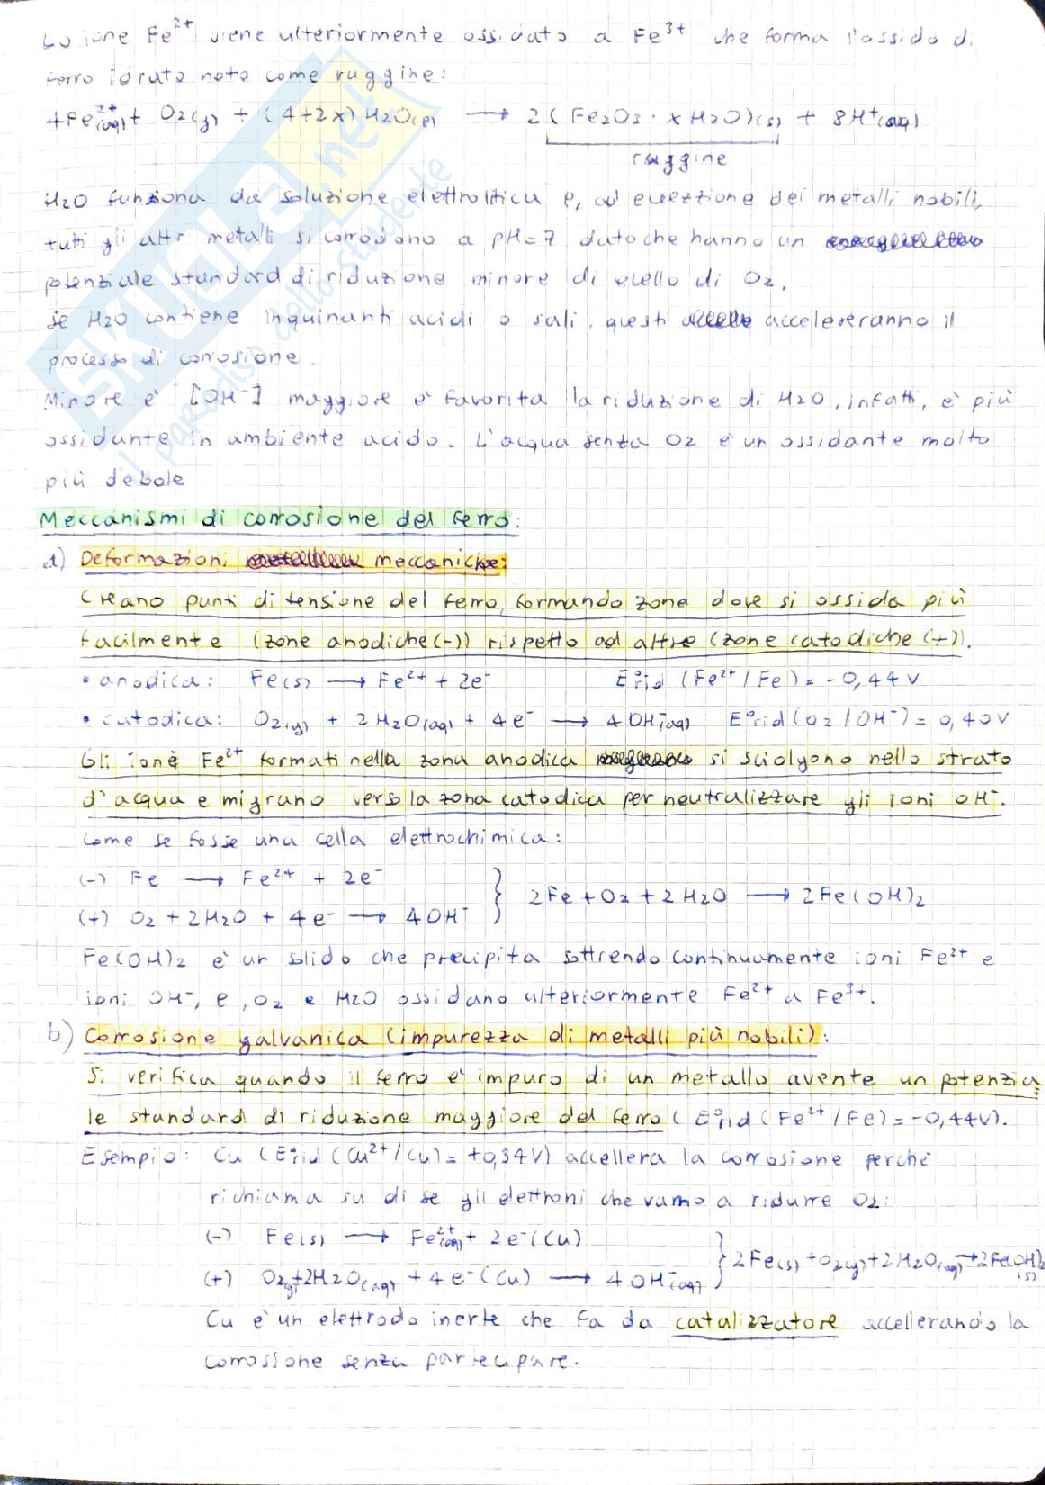 Lo ione Fe²⁺ viene ulteriormente ossidato a Fe³⁺ che forma l'ossido di
ferro idrato noto come ruggine:
4Fe²⁺(aq) + O2(g) + (4+2x) H2O(l) → 2(Fe2O3 · xH2O)(s) + 8H⁺(aq)
ruggine
H2O funziona da soluzione elettrolitica e, ad eccezione dei metalli nobili,
tutti gli altri metalli si corrodono a pH=7 dato che hanno un
potenziale standard di riduzione minore di quello di O2,
se H2O contiene inquinanti acidi o sali, questi accelereranno il
processo di corrosione.
Minore è [OH⁻] maggiore è favorita la riduzione di H2O, infatti, è più
ossidante in ambiente acido. L'acqua senza O2 è un ossidante molto
più debole
Meccanismi di corrosione del ferro:
a) Deformazioni meccaniche:
Creano punti di tensione del ferro, formando zone dove si ossida più
facilmente (zone anodiche (-)) rispetto ad altre (zone catodiche (+)).
• anodica: Fe(s) → Fe²⁺ + 2e⁻ E°rid (Fe²⁺/Fe) = -0,44 V
• catodica: O2(g) + 2H2O(aq) + 4e⁻ → 4OH⁻(aq) E°rid (O2/OH⁻) = 0,40 V
Gli ioni Fe²⁺ formati nella zona anodica si sciolgono nello strato
d'acqua e migrano verso la zona catodica per neutralizzare gli ioni OH⁻.
Come se fosse una cella elettrochimica:
(-) Fe → Fe²⁺ + 2e⁻
(+) O2 + 2H2O + 4e⁻ → 4OH⁻ } 2Fe + O2 + 2H2O → 2Fe(OH)2
Fe(OH)2 è un solido che precipita sottrendo continuamente ioni Fe²⁺ e
ioni OH⁻, e, O2 e H2O ossidano ulteriormente Fe²⁺ a Fe³⁺.
b) Corrosione galvanica (impurezza di metalli più nobili):
Si verifica quando il ferro è impuro di un metallo avente un potenzia
le standard di riduzione maggiore del ferro (E°rid (Fe²⁺/Fe) = -0,44V).
Esempio: Cu (E°rid (Cu²⁺/Cu) = +0,34V) accellera la corrosione perché
richiama su di se gli elettroni che vanno a ridurre O2:
(-) Fe(s) → Fe²⁺(aq) + 2e⁻ (Cu)
(+) O2(g) + 2H2O(aq) + 4e⁻ (Cu) → 4OH⁻(aq) } 2Fe(s) + O2(g) + 2H2O(aq) → 2Fe(OH)2(s)
Cu è un elettrodo inerte che fa da catalizzatore accellerando la
corrosione senza partecipare.